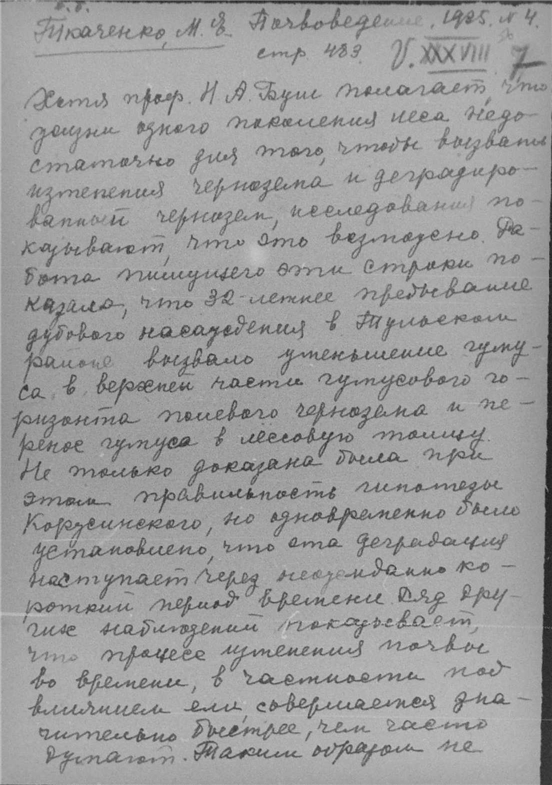 Ткаченко, М. Е. Почвоведение, 1925. № 4.
стр. 483. V. XXXVIII 7
Хотя проф. Н. А. Буш полагает, что
жизни одного поколения леса недо-
статочно для того, чтобы вызвать
изменения чернозема и деградиро-
ванный чернозем, исследования по-
казывают, что это возможно. Ра-
бота пишущего эти строки по-
казала, что 32-летнее пребывание
дубового насаждения в Тульском
районе вызвало уменьшение гуму-
са в верхней части гумусового го-
ризонта полевого чернозема и пе-
ренос гумуса в лессовую толщу.
Не только доказана была при
этом правильность гипотезы
Коружинского, но одновременно было
установлено, что эта деградация
наступает через неожиданно ко-
роткий период времени. Ряд дру-
гих наблюдений показывает,
что процесс изменения почвы
во времени, в частности под
влиянием ели совершается зна-
чительно быстрее, чем часто
думают. Таким образом не